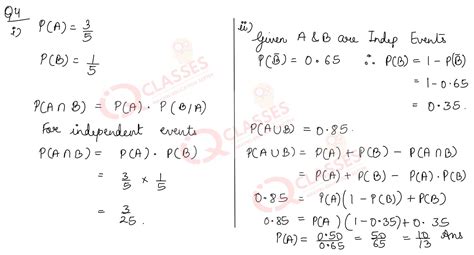 Q4
i) P(A) = 3/5
P(B) = 1/5
P(A∩B) = P(A) . P(B/A)
For independent events
P(A∩B) = P(A) . P(B)
= 3/5 × 1/5
= 3/25.
ii) Given A & B are Indep Events
P(B̄) = 0.65 ∴ P(B) = 1 - P(B̄)
= 1 - 0.65
= 0.35.
P(A∪B) = 0.85.
P(A∪B) = P(A) + P(B) - P(A∩B)
= P(A) + P(B) - P(A).P(B)
0.85 = P(A)(1 - P(B)) + P(B)
0.85 = P(A)(1-0.35) + 0.35
P(A) = 0.50/0.65 = 50/65 = 10/13 Ans
CLASSES
CLASSES